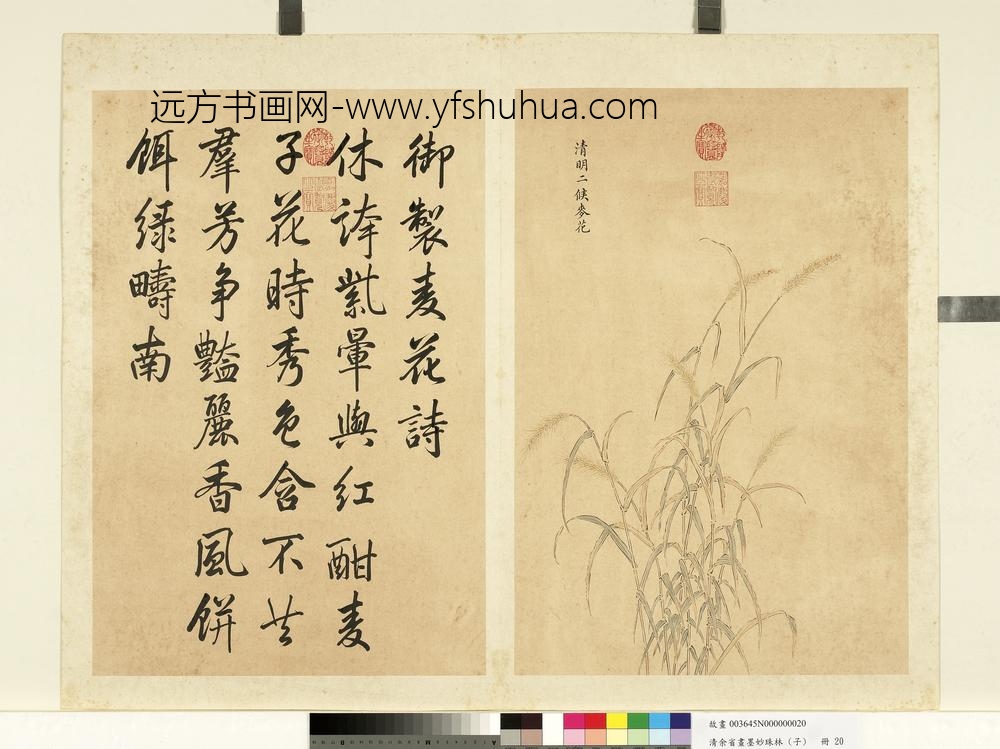 远方书画网-www.yfshuhua.com
清明二候麥花
御製麦花詩
休誇紫暈與紅酣麦
子花時秀色含不共
羣芳争豔麗香風餅
餌緑疇南
故畫 003645N000000020
清余省畫墨妙珠林（子） 冊 20